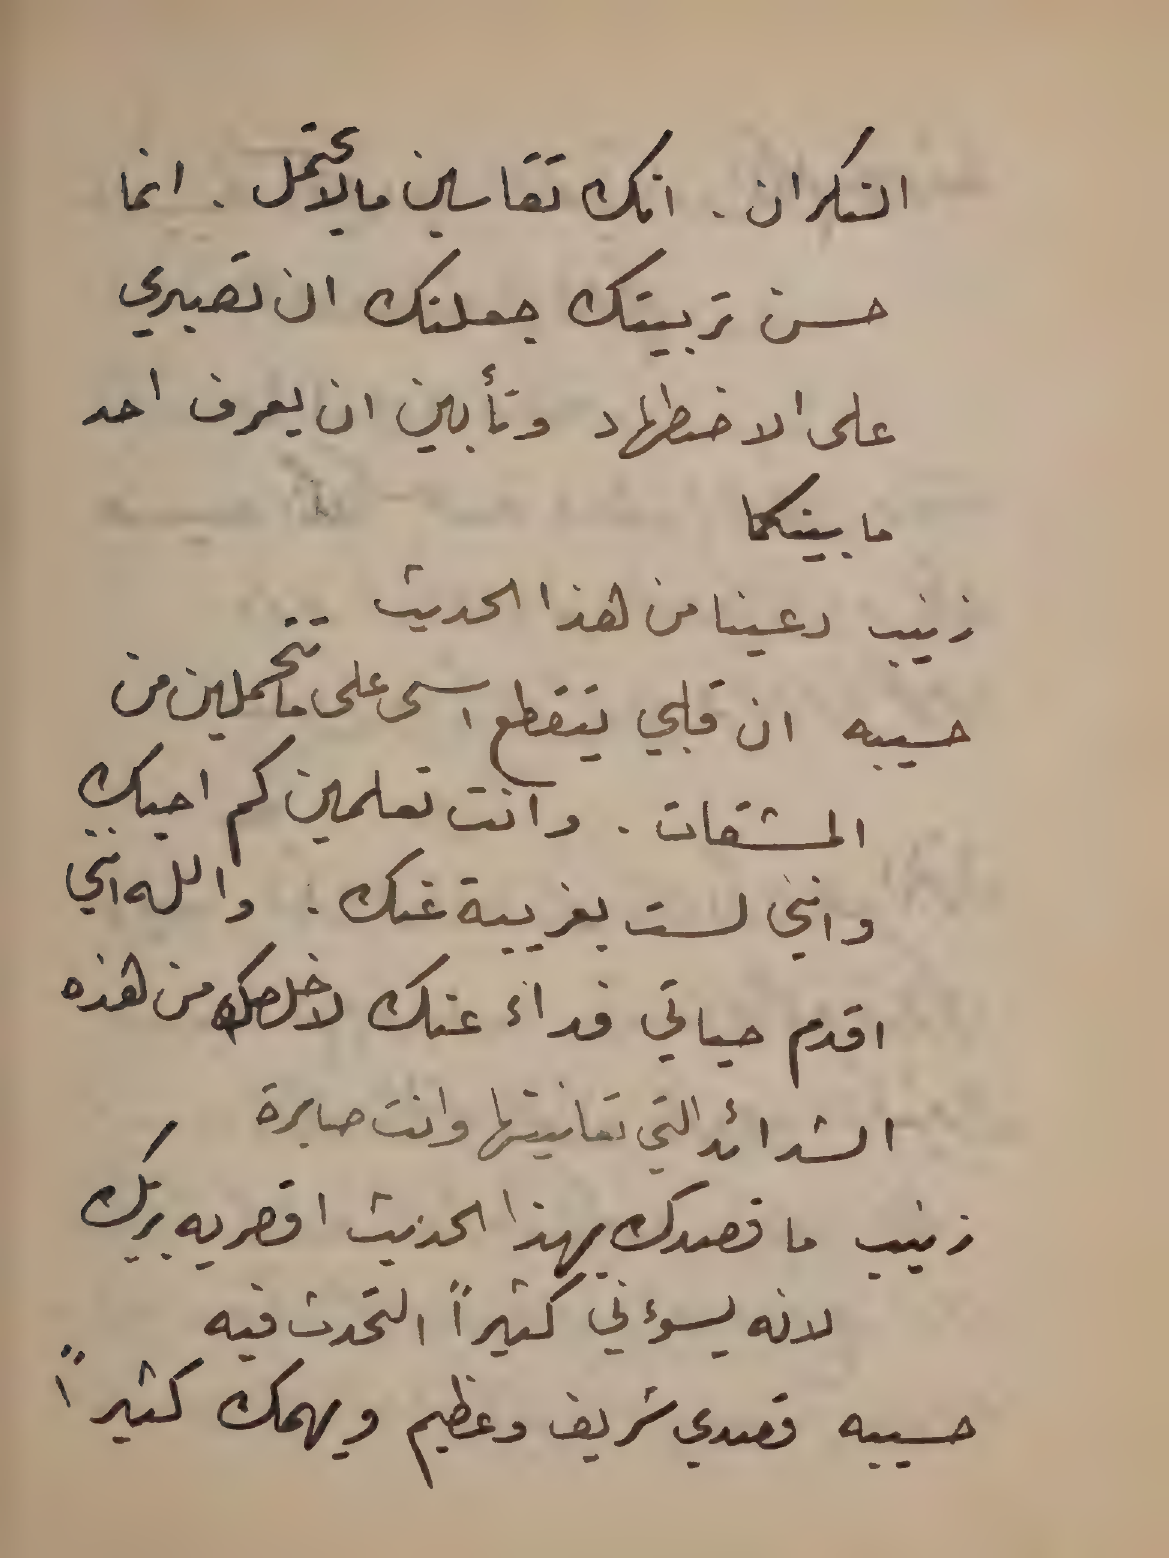 النكران. انك تقاسين مالا يحتمل. انما
حسن تربيتك جعلتك ان تصبري
على الاضطهاد وتأبين ان يعرف احد
ما بينكما
زينب دعينا من هذا الحديث
حسيبه ان قلبي يتقطع اسى على ما تتحملين من
المشقات. وانت تعلمين كم احبك
وانني لست بغريبة عنك. والله انني
اقدم حياتي فداء عنك لاخلصك من هذه
الشدائد التي تعانينها وانت صابرة
زينب ما قصدك بهذا الحديث اقصريه بربك
لانه يسوءني كثيراً التحدث فيه
حسيبه قصدي شريف وعظيم ويهمك كثيراً